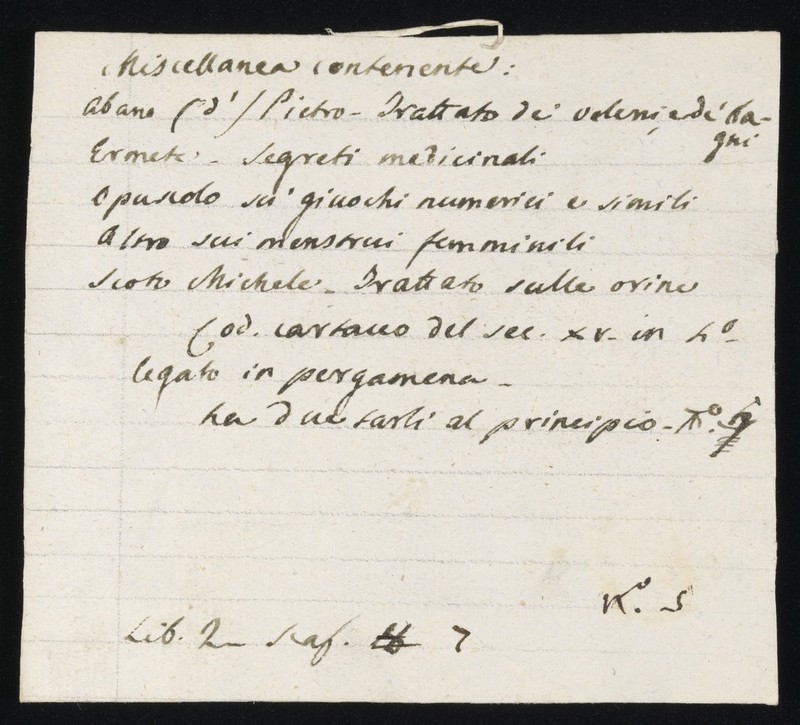 Miscellanea contenente:
Abano (d') Pietro - Trattato de' veleni, e de' Ba-
gni
Ermete - Segreti medicinali
Opuscolo su' giuochi numerici e simili
Altro sui menstrui femminili
Scoto Michele - Trattato sulle orine
Cod. cartaceo del sec. XV - in 4º -
legato in pergamena -
ha due tarli al principio -
Nº. 5
Lib. 2 - Scaf. 7